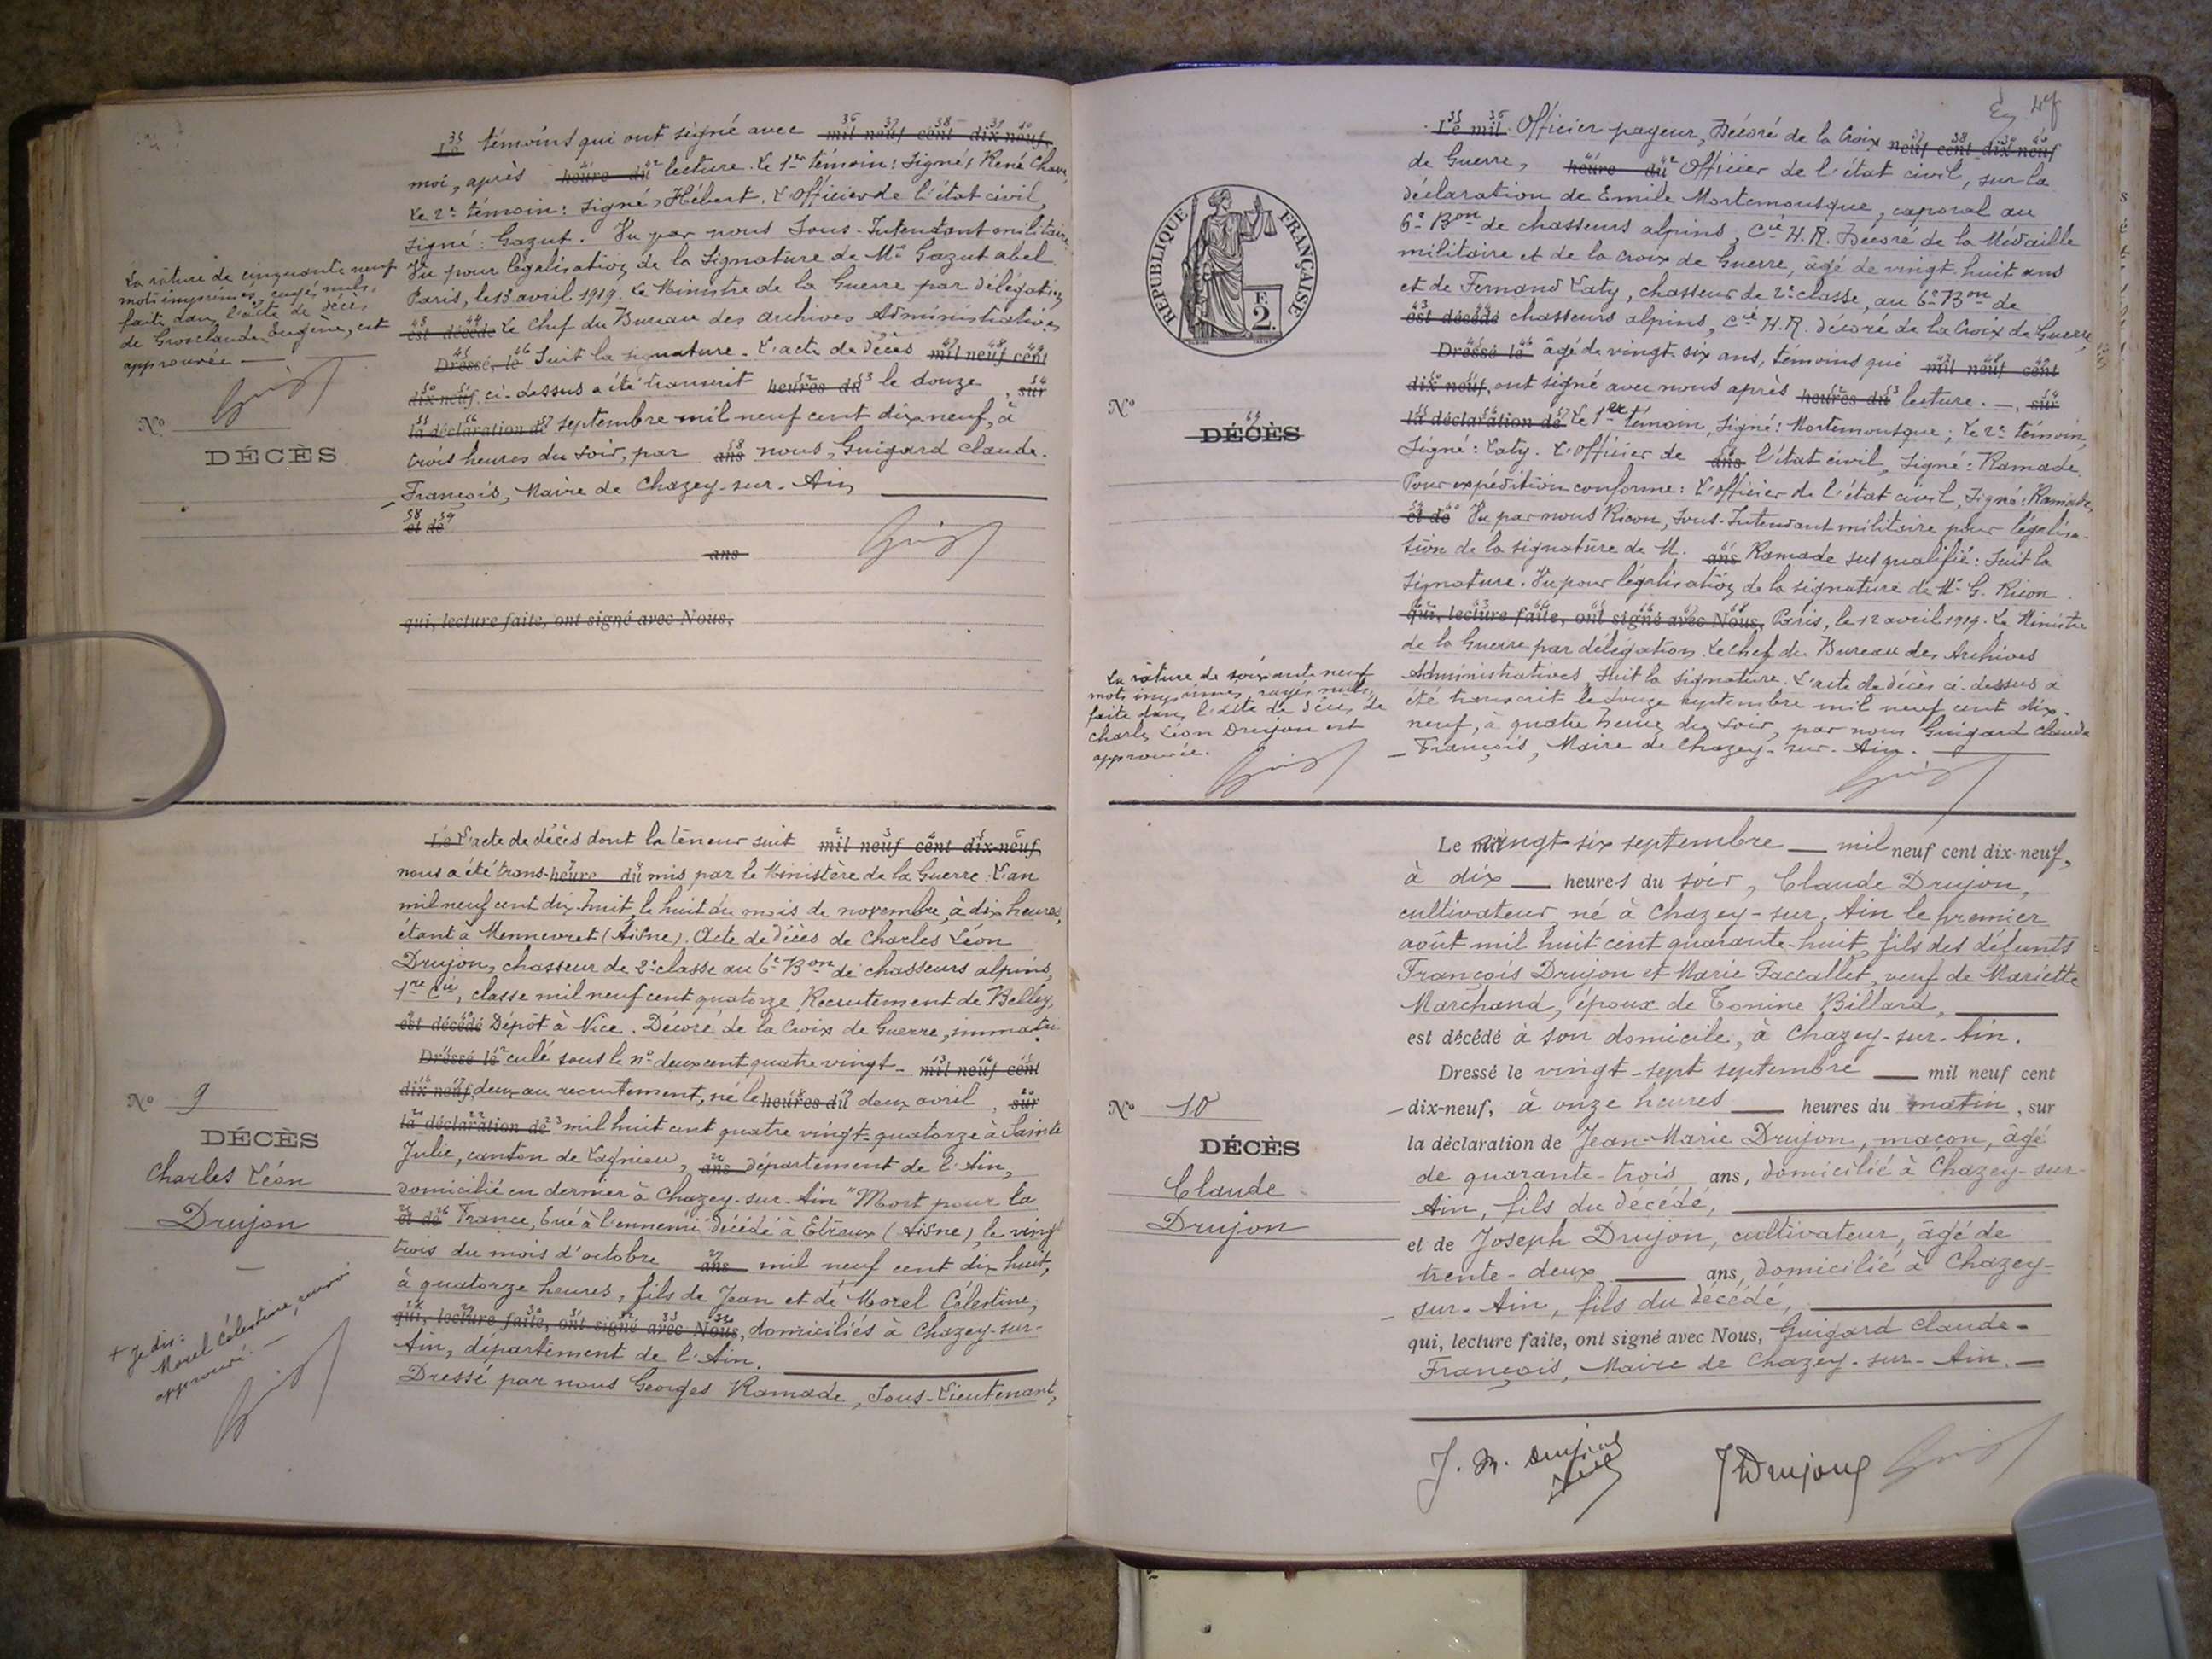 Le témoins qui ont signé avec mil neuf cent dix-neuf,
moi, après heure du lecture. Le 1er témoin: Signé: René
Le 2e témoin: Signé: Hébert. L'Officier de l'état civil,
signé: Gazut. Vu par nous Sous-Intendant militaire
Vu pour légalisation de la Signature de Mr Gazut abel
Paris, le 13 avril 1919. Le Ministre de la Guerre par délégation
est décédé Le Chef du Bureau des archives Administratives
Dressé, le Suit la signature. L'acte de décès mil neuf cent
dix-neuf, ci-dessus a été transcrit heures du le douze, sur
la déclaration de septembre mil neuf cent dix neuf, à
trois heures du soir, par ans nous, Guigard Claude-
François, Maire de Chazey-sur-Ain
et de
ans
qui, lecture faite, ont signé avec Nous,
La rature de cinquante neuf
mots imprimés, rayés nuls,
faite dans l'acte de décès
de Grosclaude Eugène, est
approuvée —
No
DÉCÈS
Le L'acte de décès dont la teneur suit mil neuf cent dix-neuf,
nous a été trans- heure du mis par le Ministère de la Guerre: L'an
mil neuf cent dix-huit, le huit du mois de novembre, à dix heures,
étant à Mennevret (Aisne). Acte de décès de Charles Léon
Drujon, chasseur de 2e classe au 6e Bon de chasseurs alpins,
1re Cie, classe mil neuf cent quatorze Recrutement de Belley,
est décédé Dépôt à Nice. Décoré de la Croix de Guerre, immatri-
Dressé le culé sous le no deux cent quatre vingt- mil neuf cent
dix-neuf, deux au recrutement, né le heures du deux avril, sur
la déclaration de mil huit cent quatre vingt-quatorze à Sainte
Julie, canton de Lagnieu, ans département de l'Ain,
domicilié en dernier à Chazey-sur-Ain "Mort pour la
et de France, tué à l'ennemi" décédé à Etreux (Aisne), le vingt
trois du mois d'octobre ans mil neuf cent dix huit,
à quatorze heures, fils de Jean et de + Morel Célestine,
qui, lecture faite, ont signé avec Nous, domiciliés à Chazey-sur-
Ain, département de l'Ain.
Dressé par nous Georges Ramade, Sous-Lieutenant,
No 9
DÉCÈS
Charles Léon
Drujon
+ Je dis:
Morel Célestine, renvoi
approuvé. —
47
Le mil Officier payeur, Décoré de la Croix neuf cent dix-neuf
de Guerre, heure du Officier de l'état civil, sur la
déclaration de Emile Mortemousque, caporal au
6e Bon de chasseurs alpins, Cie H.R. Décoré de la Médaille
militaire et de la croix de Guerre, âgé de vingt-huit ans
et de Fernand Laty, chasseur de 2e classe, au 6e Bon de
est décédé chasseurs alpins, Cie H.R. décoré de la Croix de Guerre,
Dressé le âgé de vingt-six ans, témoins qui mil neuf cent
dix-neuf, ont signé avec nous après heures du lecture. —, sur
la déclaration de Le 1er témoin, Signé: Mortemousque; Le 2e témoin,
Signé: Laty. L'officier de ans l'état civil, Signé: Ramade.
Pour expédition conforme: L'officier de l'état civil, Signé: Ramade,
et de Vu par nous Ricon, Sous-Intendant militaire pour légalisa-
tion de la signature de M. ans Ramade sus qualifié: Suit la
signature. Vu pour légalisation de la signature de Mr G. Ricon.
qui, lecture faite, ont signé avec Nous, Paris, le 12 avril 1919. Le Ministre
de la Guerre par délégation. Le chef du Bureau des Archives
Administratives, Suit la signature. L'acte de décès ci-dessus a
été transcrit le douze septembre mil neuf cent dix-
neuf, à quatre heures du soir, par nous Guigard Claude
François, Maire de Chazey-sur-Ain.
RÉPUBLIQUE FRANÇAISE
F.
2.
No
DÉCÈS
La rature de soixante neuf
mots imprimés, rayés nuls,
faite dans l'acte de décès de
Charles Léon Drujon est
approuvée.
Le vingt-six septembre — mil neuf cent dix-neuf,
à dix — heures du soir, Claude Drujon,
cultivateur, né à Chazey-sur-Ain le premier
août mil huit cent quarante-huit, fils des défunts
François Drujon et Marie Paccallet, veuf de Mariette
Marchand, époux de Tonine Billard,
est décédé à son domicile, à Chazey-sur-Ain.
Dressé le vingt-sept septembre — mil neuf cent
dix-neuf, à onze heures — heures du matin, sur
la déclaration de Jean-Marie Drujon, maçon, âgé
de quarante-trois ans, domicilié à Chazey-sur-
Ain, fils du décédé,
et de Joseph Drujon, cultivateur, âgé de
trente-deux — ans, domicilié à Chazey-
sur-Ain, fils du décédé,
qui, lecture faite, ont signé avec Nous, Guigard Claude-
François, Maire de Chazey-sur-Ain. —
No 10
DÉCÈS
Claude
Drujon
J. M. Drujon
J Drujon